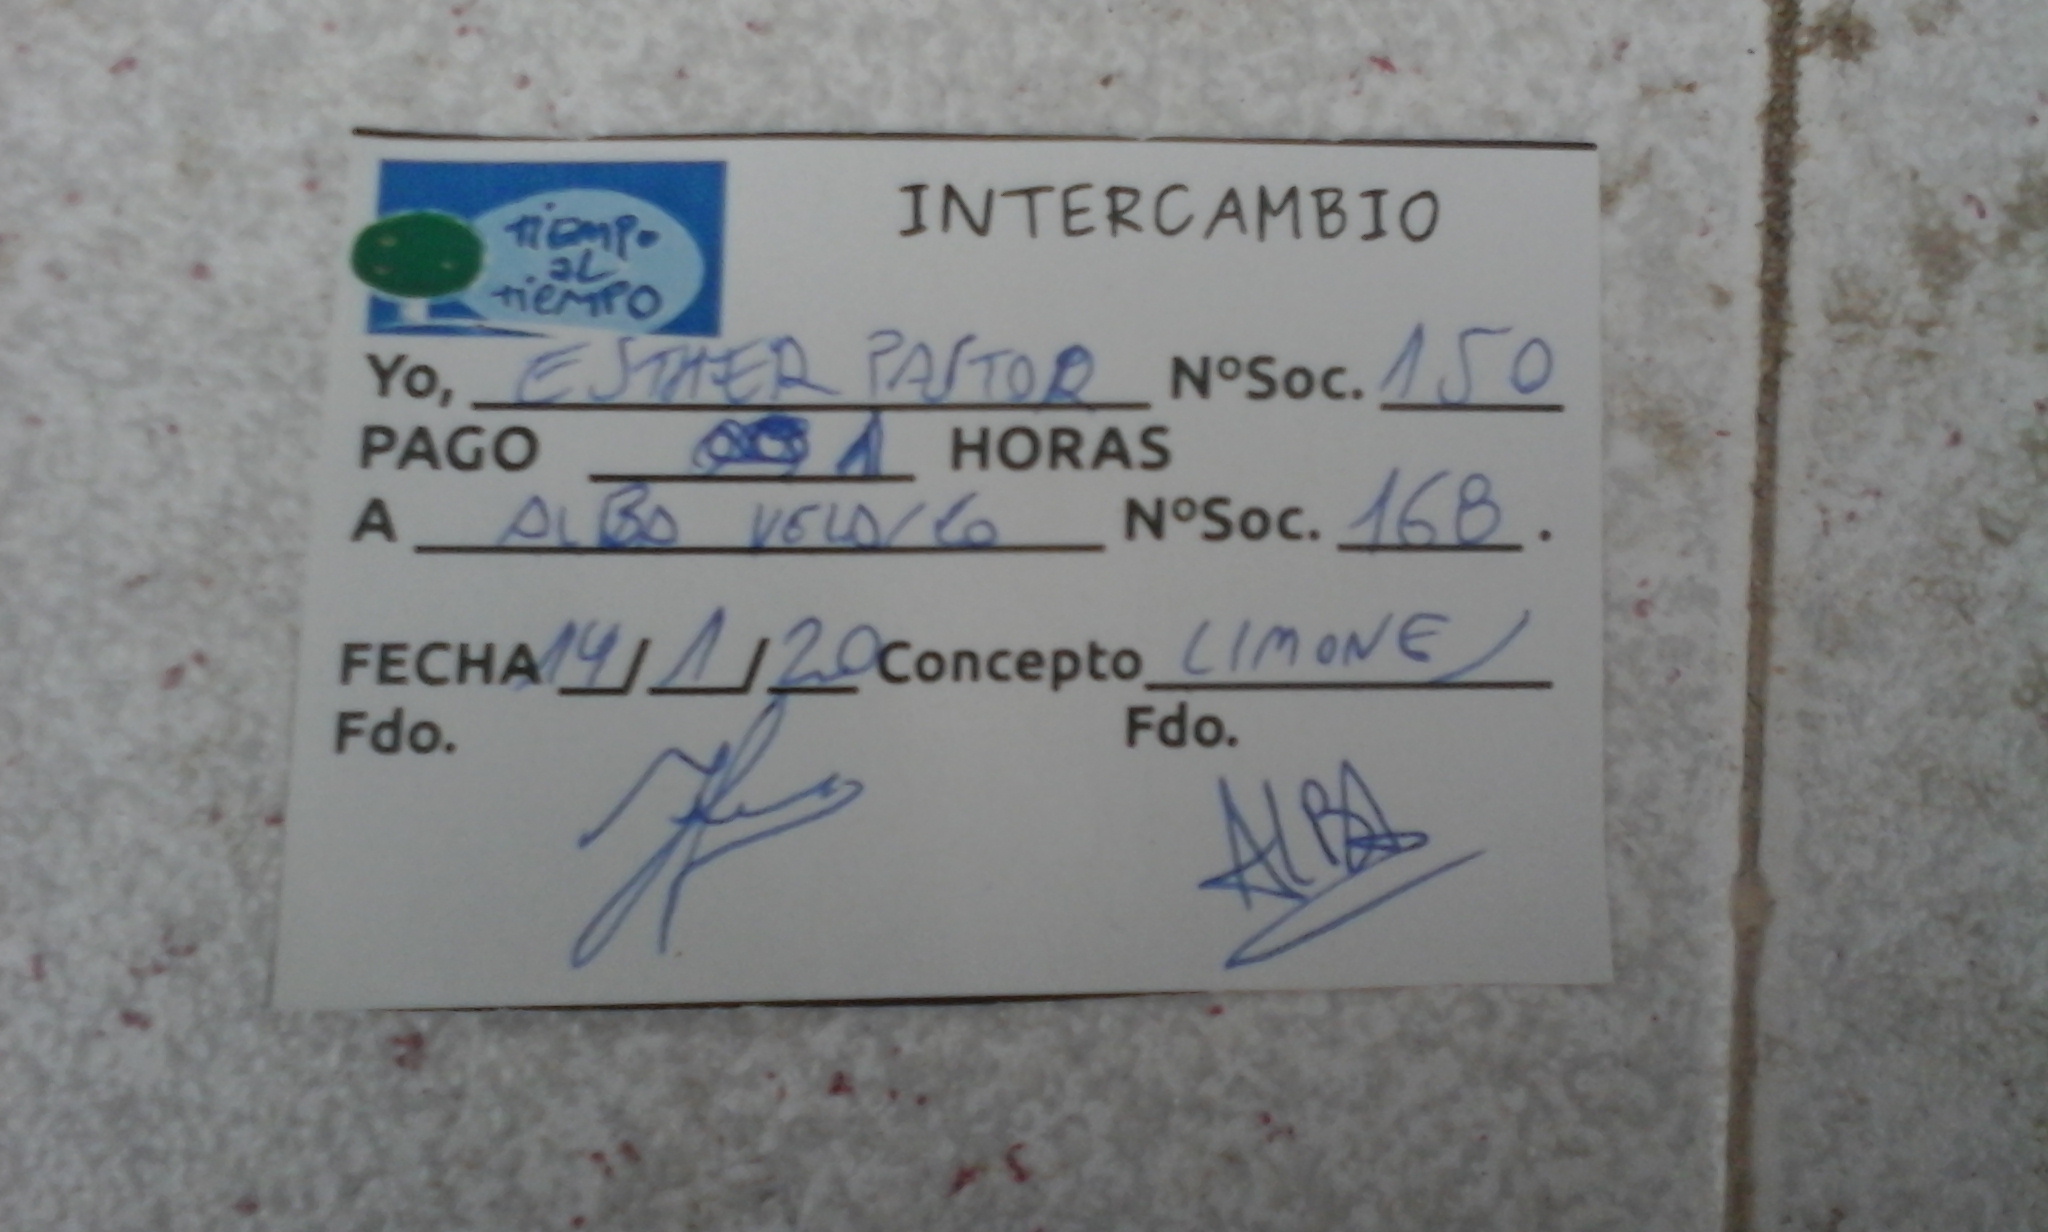 tiempo
al
tiempo
INTERCAMBIO
Yo, ESTHER PASTOR NºSoc. 150
PAGO 1 HORAS
A ALBA VELASCO NºSoc. 168.
FECHA 14/1/20 Concepto LIMONES
Fdo. Fdo.
ALBA